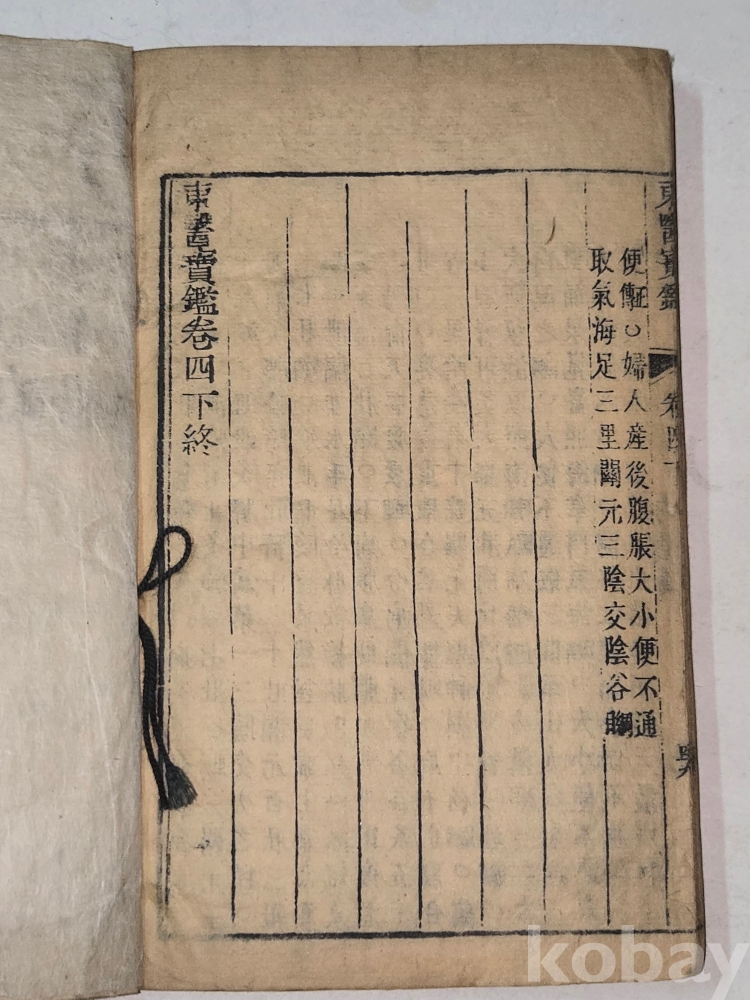 東醫寶鑑 卷四下
便㽲○婦人産後腹脹大小便不通
取氣海足三里關元三陰交陰谷
東醫寶鑑卷四下終
kobay